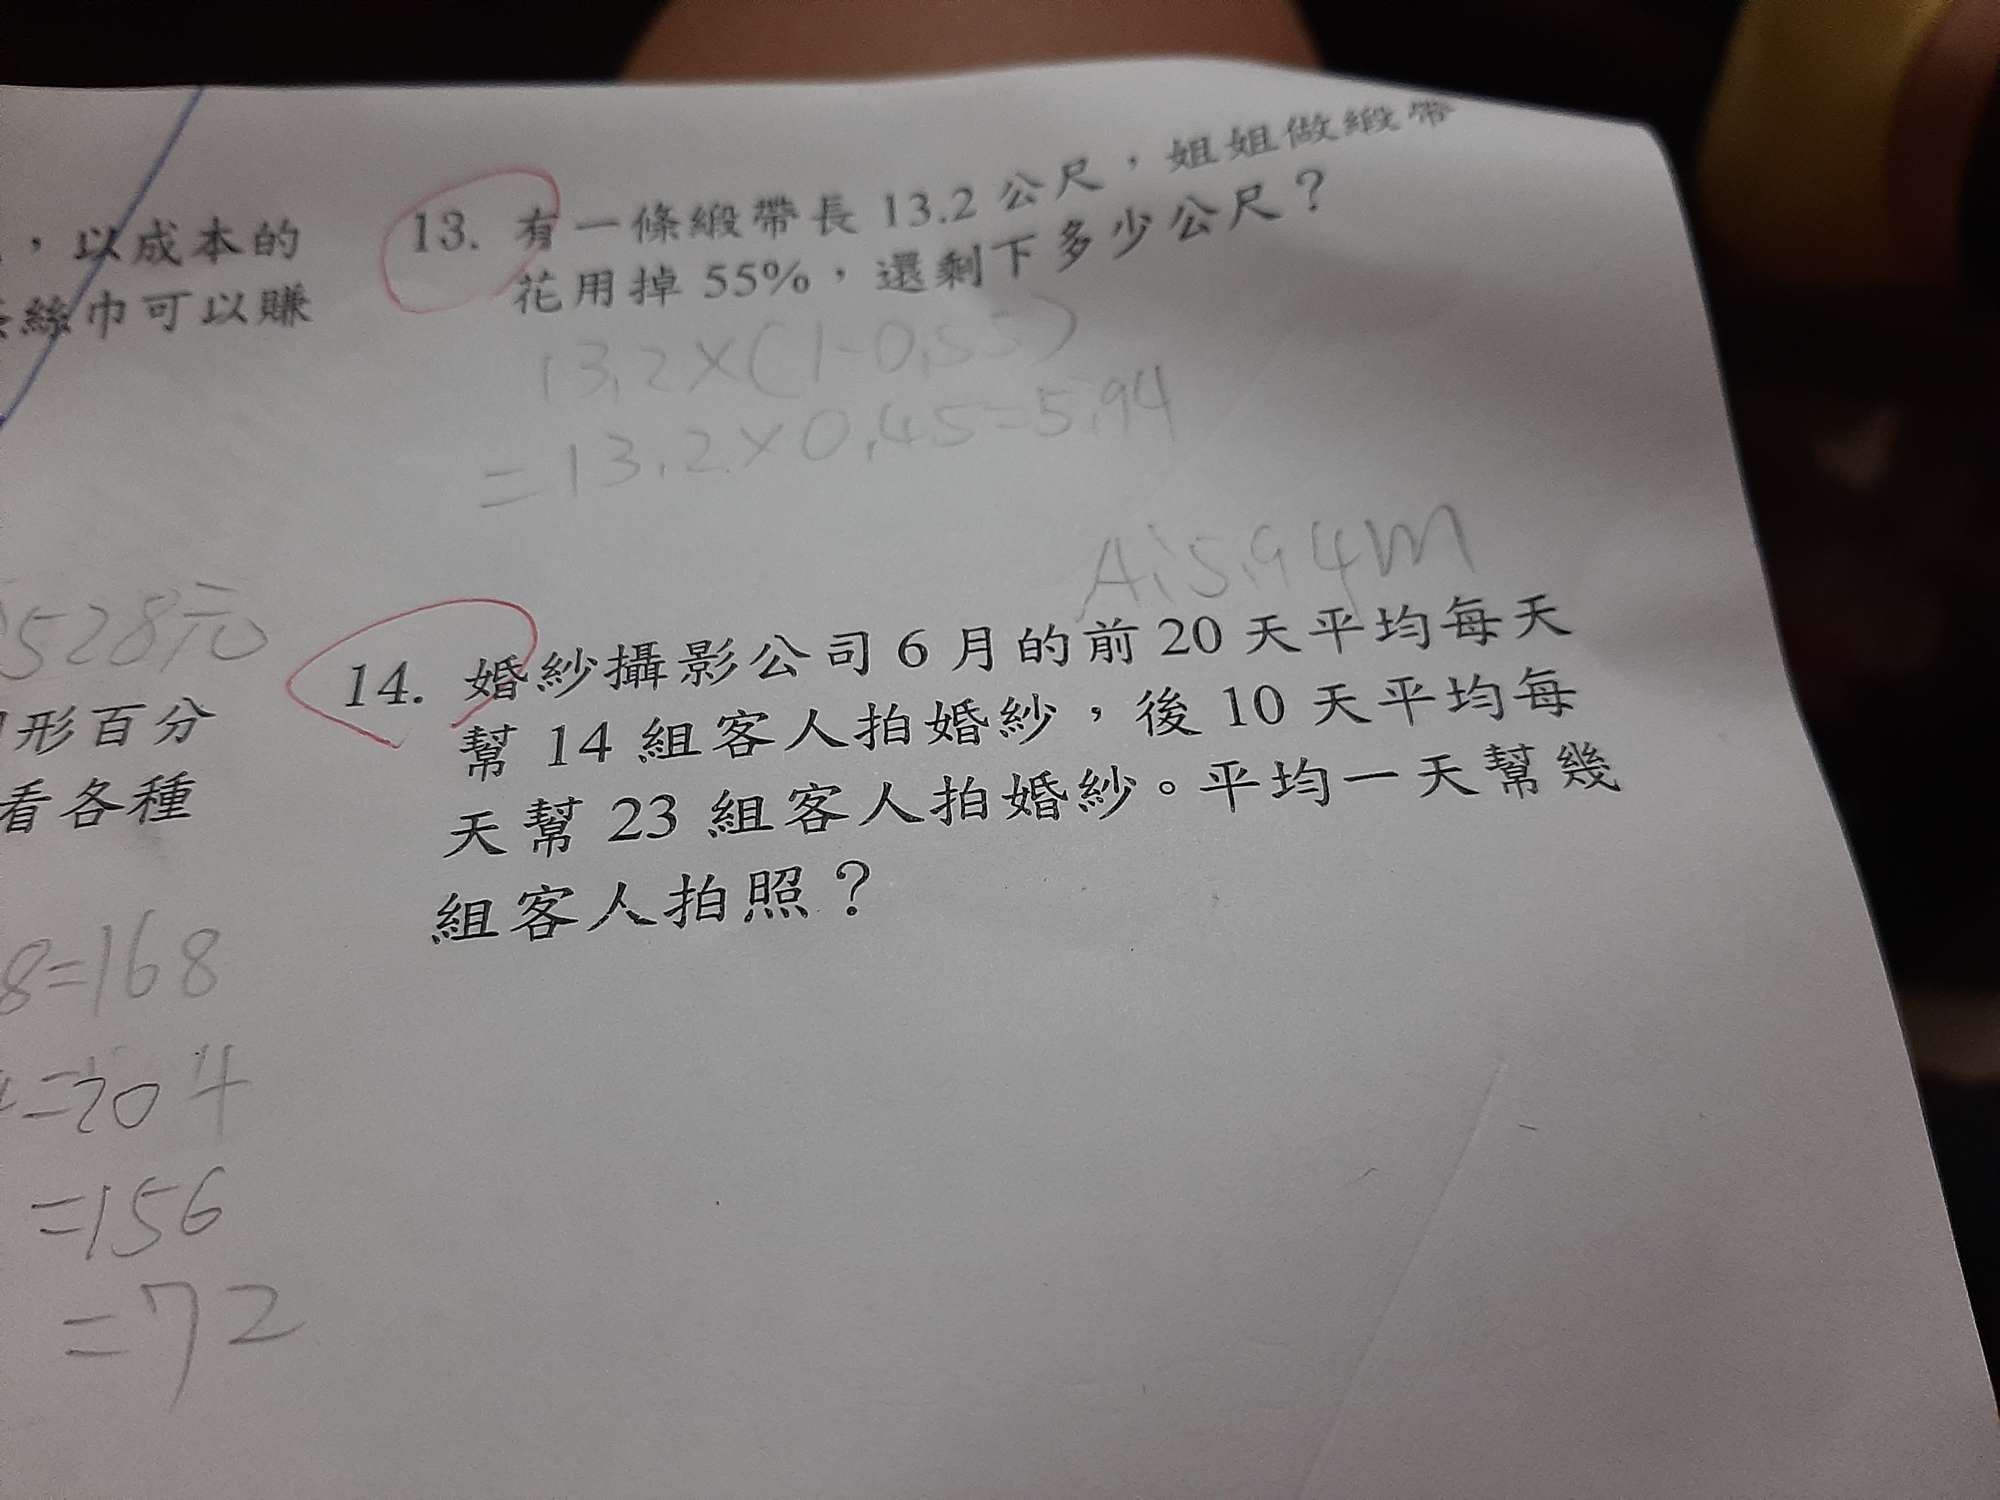 ，以成本的
絲巾可以賺
528元
形百分
看各種
8=168
=204
=156
=72
13. 有一條緞帶長 13.2 公尺，姐姐做緞帶
花用掉 55%，還剩下多少公尺？
13.2×(1-0.55)
=13.2×0.45=5.94
A:5.94m
14. 婚紗攝影公司 6 月的前 20 天平均每天
幫 14 組客人拍婚紗，後 10 天平均每
天幫 23 組客人拍婚紗。平均一天幫幾
組客人拍照？